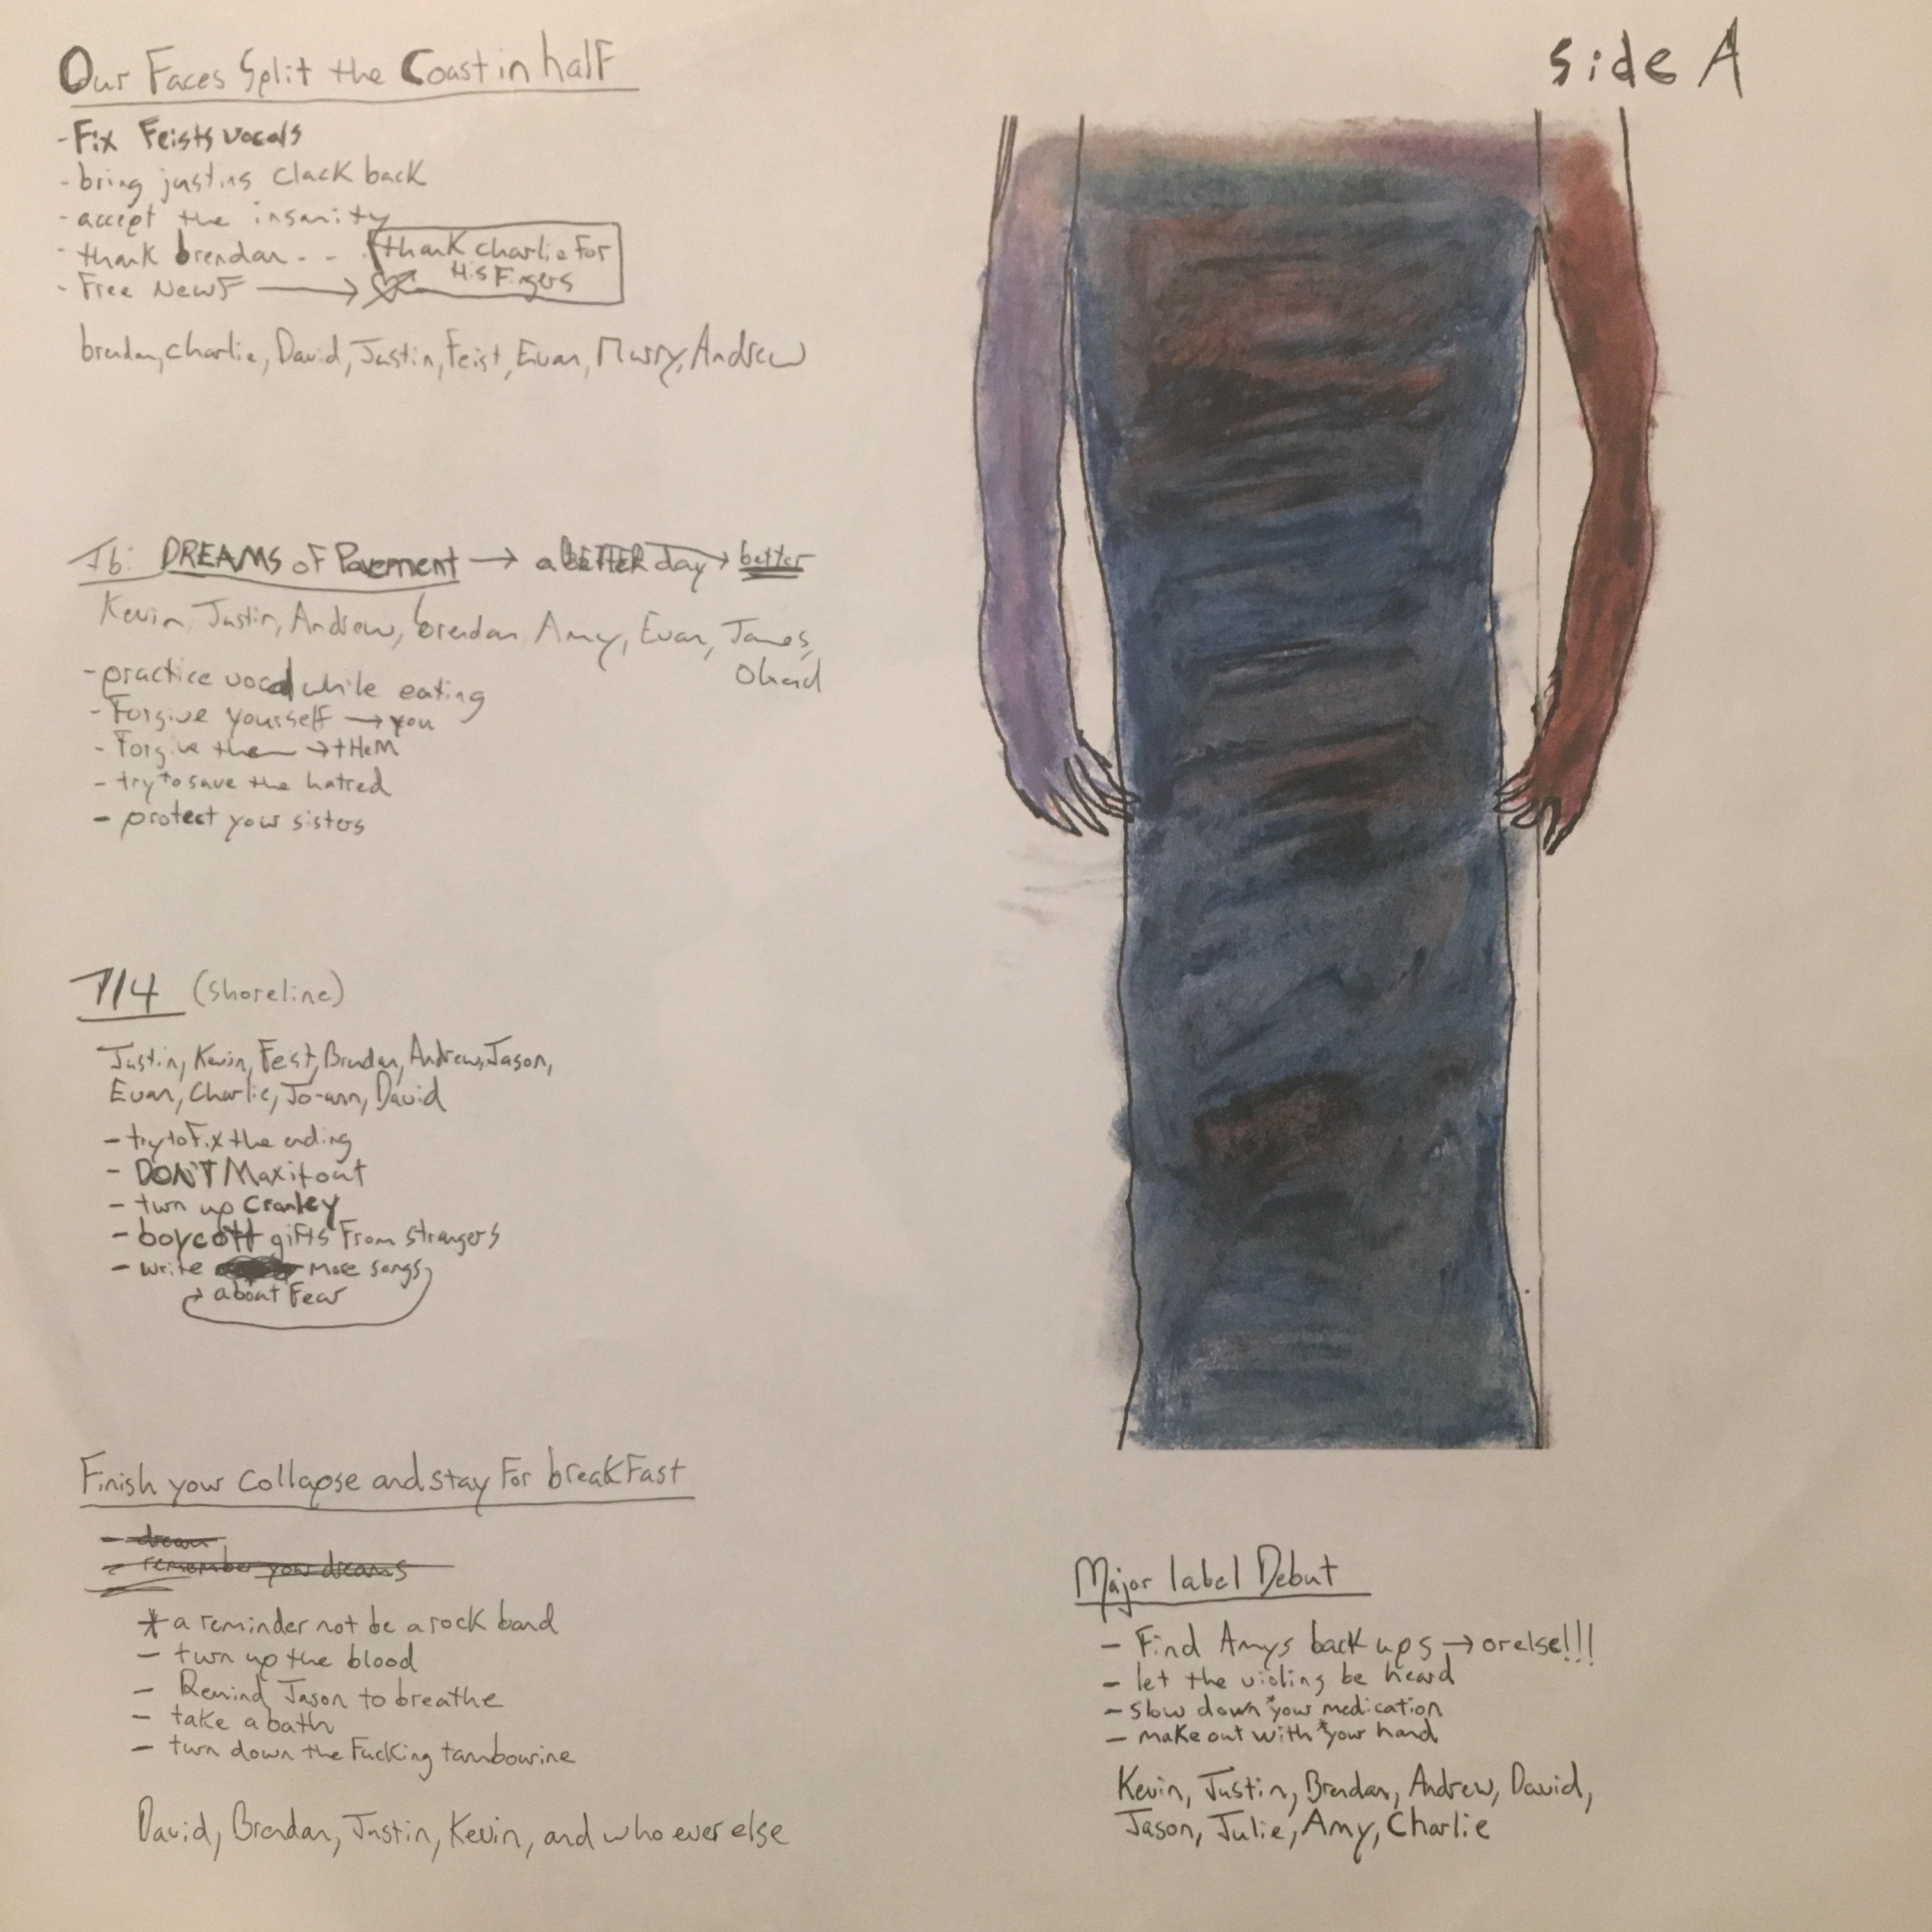 side A
Our Faces Split the Coast in half
- Fix Feists vocals
- bring justins clack back
- accept the insanity
- thank brendan - - . thank charlie For
His Fingers
- Free NewF →
brendan, charlie, David, Justin, Feist, Evan, Murry, Andrew
Ib: DREAMS of Pavement → a BETTER day → better
Kevin, Justin, Andrew, brendan Amy, Evan, James,
Ohad
- practice vocal while eating
- Forgive yourself → you
- Forgive them → tHeM
- try to save the hatred
- protect your sisters
7/4 (shoreline)
Justin, Kevin, Fest, Brendan, Andrew, Jason,
Evan, Charlie, Jo-ann, David
- try to Fix the ending
- DON'T Max it out
- turn up Cranley
- boycott gifts From strangers
- write more songs
→ about Fear
Finish your Collapse and stay For breakFast
- dream
- remember your dreams
* a reminder not be a rock band
- turn up the blood
- Remind Jason to breathe
- take a bath
- turn down the Fucking tambourine
David, Brendan, Justin, Kevin, and who ever else
Major label Debut
- Find Amys back ups → or else!!!
- let the violins be heard
- slow down *your medication
- make out with *your hand
Kevin, Justin, Brendan, Andrew, David,
Jason, Julie, Amy, Charlie